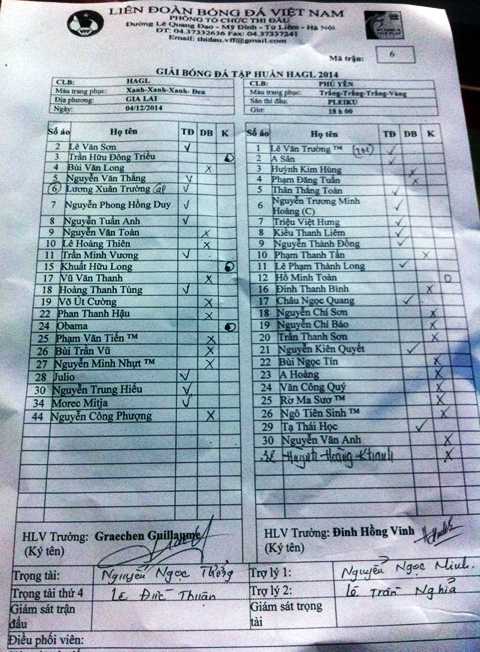 LIÊN ĐOÀN BÓNG ĐÁ VIỆT NAM
PHÒNG TỔ CHỨC THI ĐẤU
Đường Lê Quang Đạo - Mỹ Đình - Từ Liêm - Hà Nội
ĐT: 04.37332636 Fax: 04.37337241
Email: thidau.vff@gmail.com
Mã trận: 6
GIẢI BÓNG ĐÁ TẬP HUẤN HAGL 2014
CLB: HAGL
Màu trang phục: Xanh-Xanh-Xanh- Đen
Địa phương: GIA LAI
Ngày: 04/12/2014
CLB: PHÚ YÊN
Màu trang phục: Trắng-Trắng-Trắng-Vàng
Sân thi đấu: PLEIKU
Giờ: 18 h00
Số áo Họ tên TĐ DB K
2 Lê Văn Sơn ✓
3 Trần Hữu Đông Triều
4 Bùi Văn Long X
5 Nguyễn Văn Thắng ✓
6 Lương Xuân Trường ✓
7 Nguyễn Phong Hồng Duy ✓
8 Nguyễn Tuấn Anh ✓
9 Nguyễn Văn Toàn X
10 Lê Hoàng Thiên X
11 Trần Minh Vương ✓
15 Khuất Hữu Long
17 Vũ Văn Thanh X
18 Hoàng Thanh Tùng ✓
19 Võ Út Cường X
22 Phan Thanh Hậu X
24 Obama
25 Phạm Văn Tiến ™ X
26 Bùi Trần Vũ X
27 Nguyễn Minh Nhựt ™ X
28 Julio ✓
30 Nguyễn Trung Hiếu ✓
34 Morec Mitja ✓
44 Nguyễn Công Phượng X
Số áo Họ tên TĐ DB K
1 Lê Văn Trường ™ ✓
2 A Sân ✓
3 Huỳnh Kim Hùng X
4 Phạm Đăng Tuấn X
5 Thân Thắng Toàn ✓
6 Nguyễn Trương Minh Hoàng (C) ✓
7 Triệu Việt Hưng ✓
8 Kiều Thanh Liêm ✓
9 Nguyễn Thành Đồng ✓
10 Phạm Thanh Tấn X
11 Lê Phạm Thành Long ✓
12 Hồ Minh Toàn
16 Đinh Thanh Bình X
17 Châu Ngọc Quang ✓
18 Nguyễn Chí Sơn X
19 Nguyễn Chí Bảo X
20 Trần Thanh Sơn X
21 Nguyễn Kiên Quyết ✓
22 Bùi Ngọc Tín X
23 A Hoàng X
24 Văn Công Quý X
25 Rơ Ma Sươ ™ X
26 Ngô Tiên Sinh ™ X
29 Tạ Thái Học ✓
30 Nguyễn Văn Anh X
Huỳnh Hoàng Khanh X
HLV Trưởng: Graechen Guillaume
(Ký tên)
HLV Trưởng: Đinh Hồng Vinh
(Ký tên)
Trọng tài: Nguyễn Ngọc
Trợ lý 1: Nguyễn Ngọc Minh
Trọng tài thứ 4 Lê Đức Thuận
Trợ lý 2: Lê Trần Nghĩa
Giám sát trận đấu
Giám sát trọng tài
Điều phối viên: